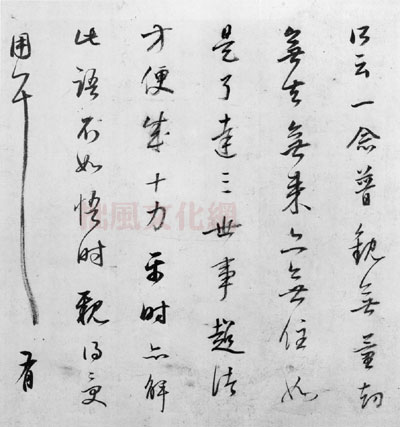 云一念普觀無量劫
無去無來亦無住如
是了達三世事超諸
方便成十力平時亦解
此語不如悟時親得受
用耳 有
拙風文化網